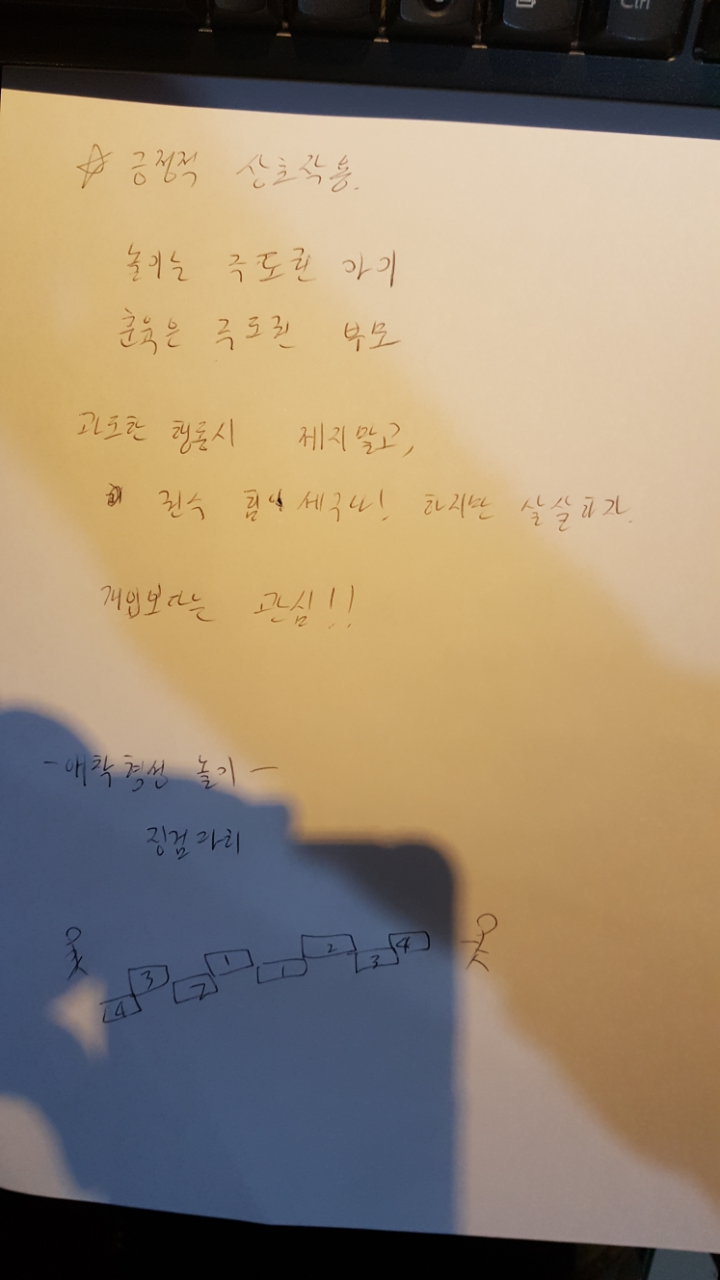 ☆ 긍정적 상호작용.
놀이는 주도권 아기
훈육은 주도권 부모
과도한 행동시 제지말고,
권수 힘이 세구나! 하지만 살살하자.
개입보다는 관심!!
-애착형성 놀이-
징검다리
4 3 2 1 1 2 3 4
Ctrl